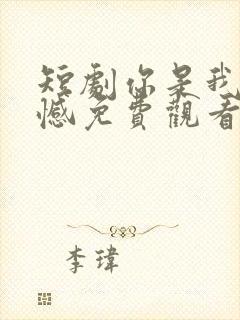 短劇你是我
憾免費觀看
李瑋